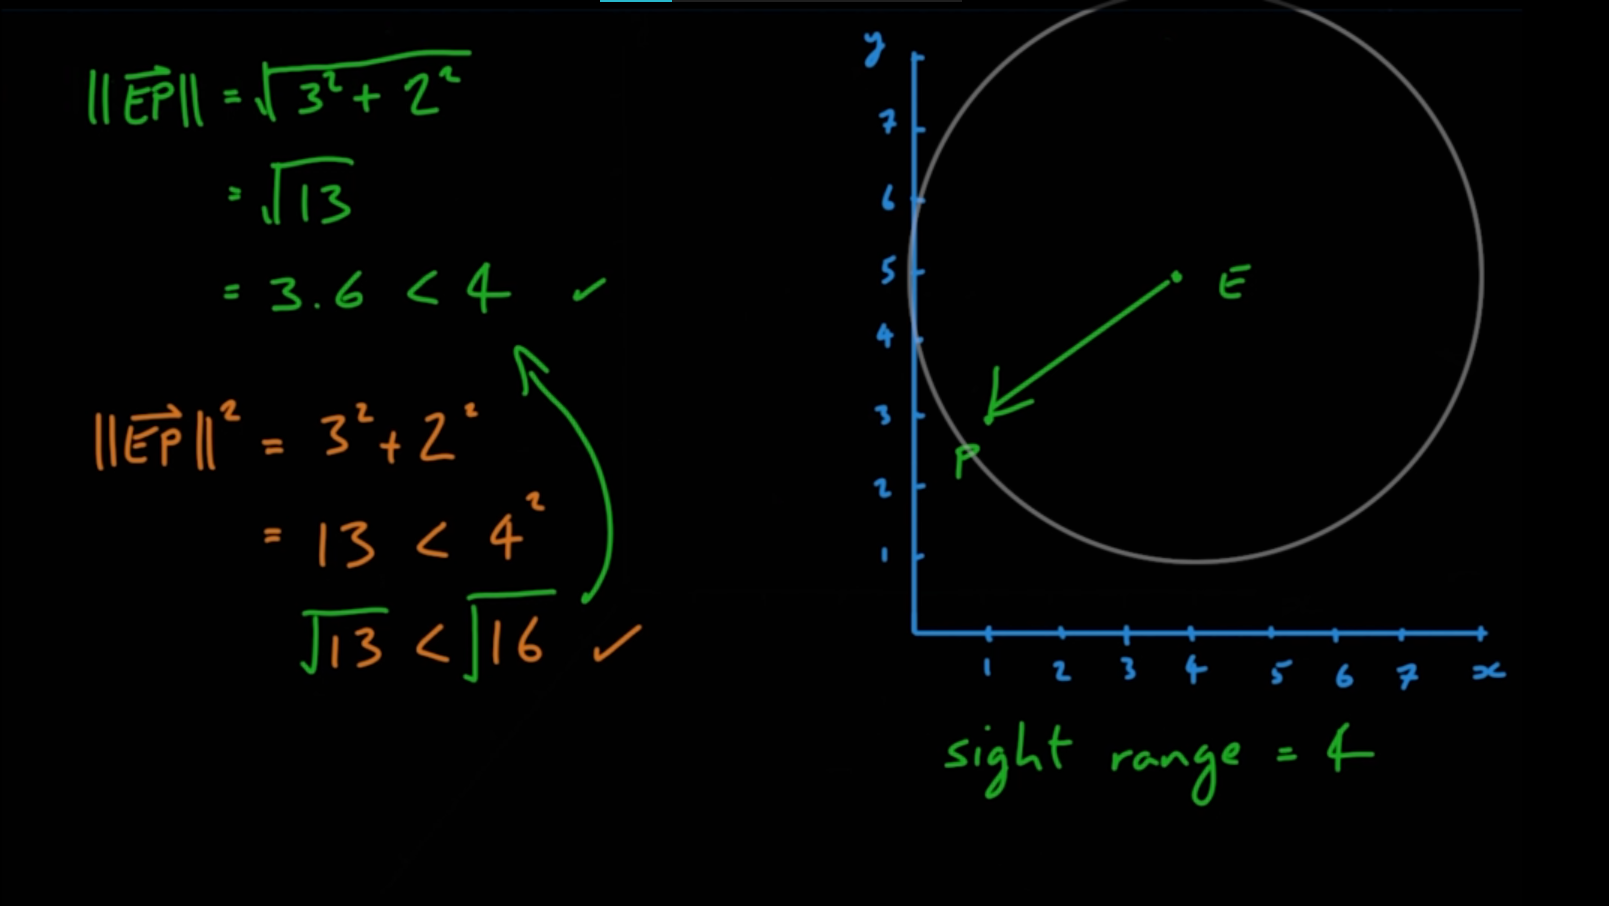 ||EP|| = √3² + 2²
= √13
= 3.6 < 4 ✓
||EP||² = 3² + 2²
= 13 < 4²
√13 < √16 ✓
y
7
6
5
4
3
2
1
E
P
1 2 3 4 5 6 7 x
sight range = 4